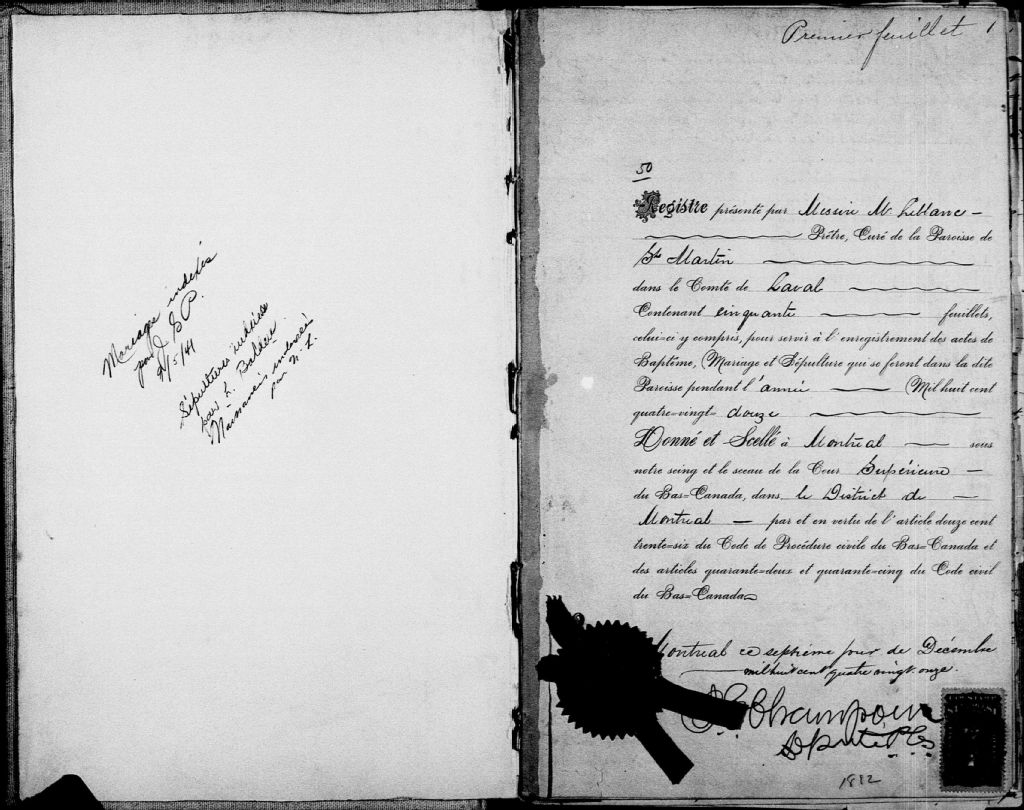 Mariage indexés
par J. E. P.
2/5/41
Sépultures
par L.
par N. L.
Premier feuillet 1
50
Registre présenté par Messire M. Leblanc
Prêtre, Curé de la Paroisse de
St Martin
dans le Comté de Laval
Contenant cinquante feuillets,
celui-ci y compris, pour servir à l'enregistrement des actes de
Baptême, Mariage et Sépulture qui se feront dans la dite
Paroisse pendant l'année Mil huit cent
quatre-vingt douze
Donné et Scellé à Montréal sous
notre seing et le sceau de la Cour Supérieure
du Bas=Canada, dans le District de
Montréal par et en vertu de l'article douze cent
trente=six du Code de Procédure civile du Bas=Canada et
des articles quarante=deux et quarante=cinq du Code civil
du Bas=Canada
Montréal ce septième jour de Décembre
mil huit cent quatre vingt onze.
Champoux
Député P.C.S.
1892